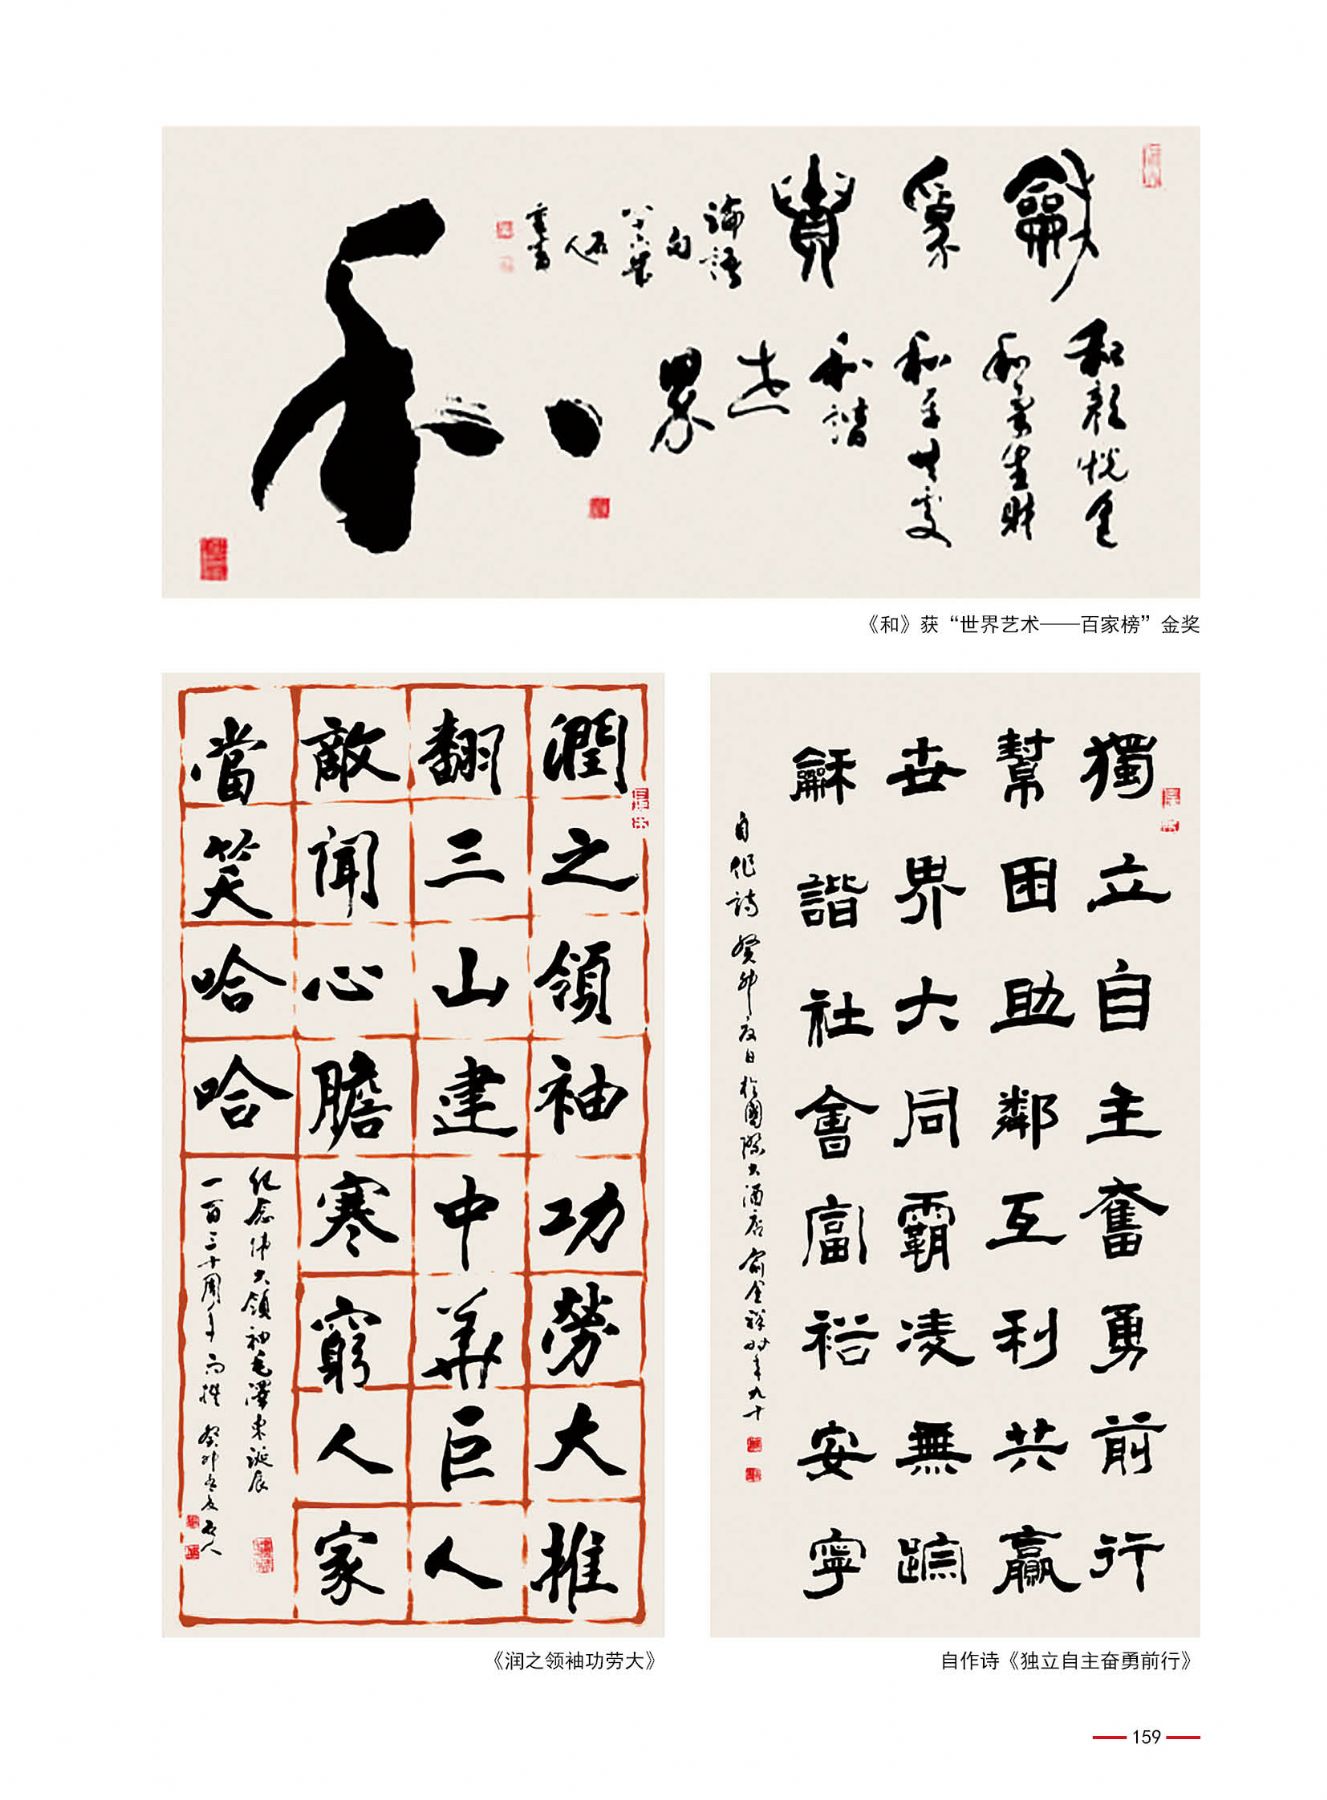 龢為貴
論語
句
八十六叟
石
人
和顏悅色
和氣生財
和平共處
和諧
世
界
和
《和》获“世界艺术——百家榜”金奖
潤之領袖功勞大推
翻三山建中華巨人
敵聞心膽寒窮人家
當笑哈哈
紀念偉大領袖毛澤東誕辰
一百三十周年
癸卯
《润之领袖功劳大》
獨立自主奮勇前行
幫困助鄰互利共贏
世界大同霸凌無蹤
龢諧社會富裕安寧
自作詩 癸卯夏日於國際大酒店俞金祥時年九十
自作诗《独立自主奋勇前行》
159